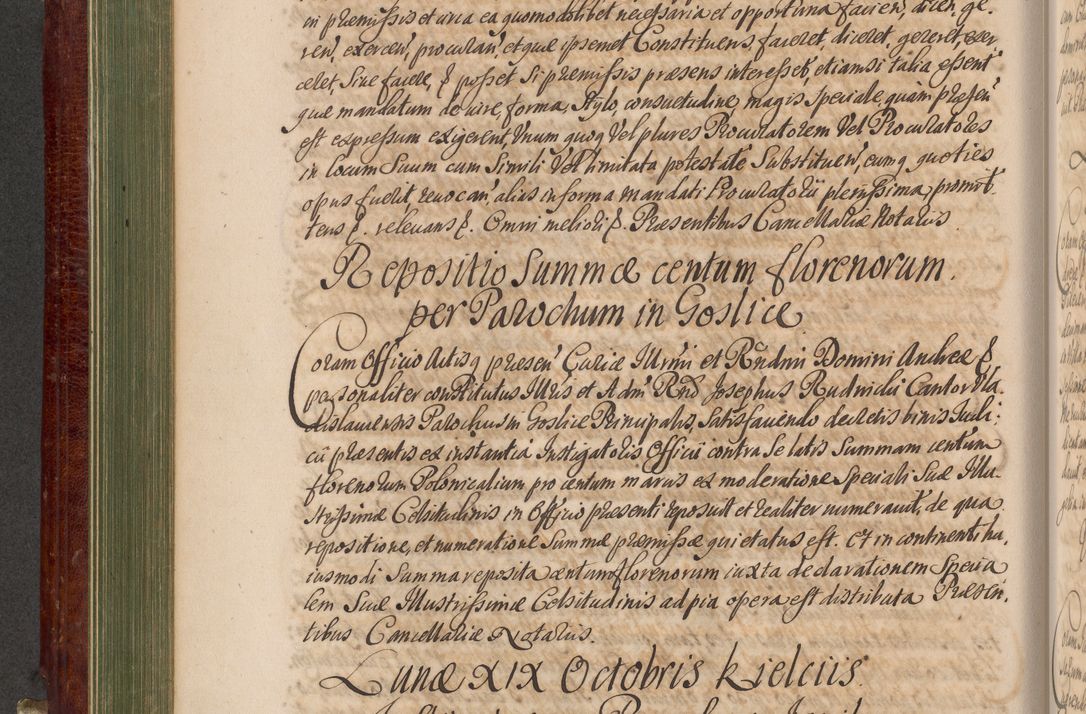 in præmissis et circa ea quomodolibet necessaria et opportuna facien, dicen, ge-
ren, exercen, procuran, et quæ ipsemet Constituens, faceret, diceret, gereret, exer
ceret, sive facere, & posset si præmissis præsens interesset, etiamsi talia essent
quæ mandatum de iure, forma, stylo, consuetudine, magis speciale, quam præsen
est expressum exigerent, Unum quoq Vel plures Procuratorem Vel Procuratores
in locum suum cum simili Vel limitata potestate substituen, eumq quoties
opus fuerit, revocan, alias in forma mandati Procuratorii plenissima, promit
tens &. relevans &. Omni meliori &. Præsentibus Cancellariæ Notarus
Repositio Summæ centum florenorum
per Parochum in Goslice
Coram Officio Actisq præsen Curiæ Illrmi et Rndmi Domini Andreæ &
personaliter constitutus Illris et Adm Rnd Josephus Rudnicki Cantor Vla
dislaviensis Parochus in Goslice Principalis, Satisfaciendo decretis binis Judi:
cii præsentis ex instantia Instigatoris Officii contra se latis Summam centum
florenorum Polonicalium pro centum marcis ex moderatione speciali Suæ Illu-
strissimæ Celsitudinis in Officio præsenti reposuit et realiter numeravit, de qua
repositione, et numeratione Summæ præmissæ quietatus est. Et in continenti hu,
iusmodi Summa reposita centum florenorum iuxta declarationem specia
lem Suæ Illustrissimæ Celsitudinis ad pia opera est distributa Præsen,
tibus Cancellariæ Notarius.
Lunæ XIX Octobris Kielciis